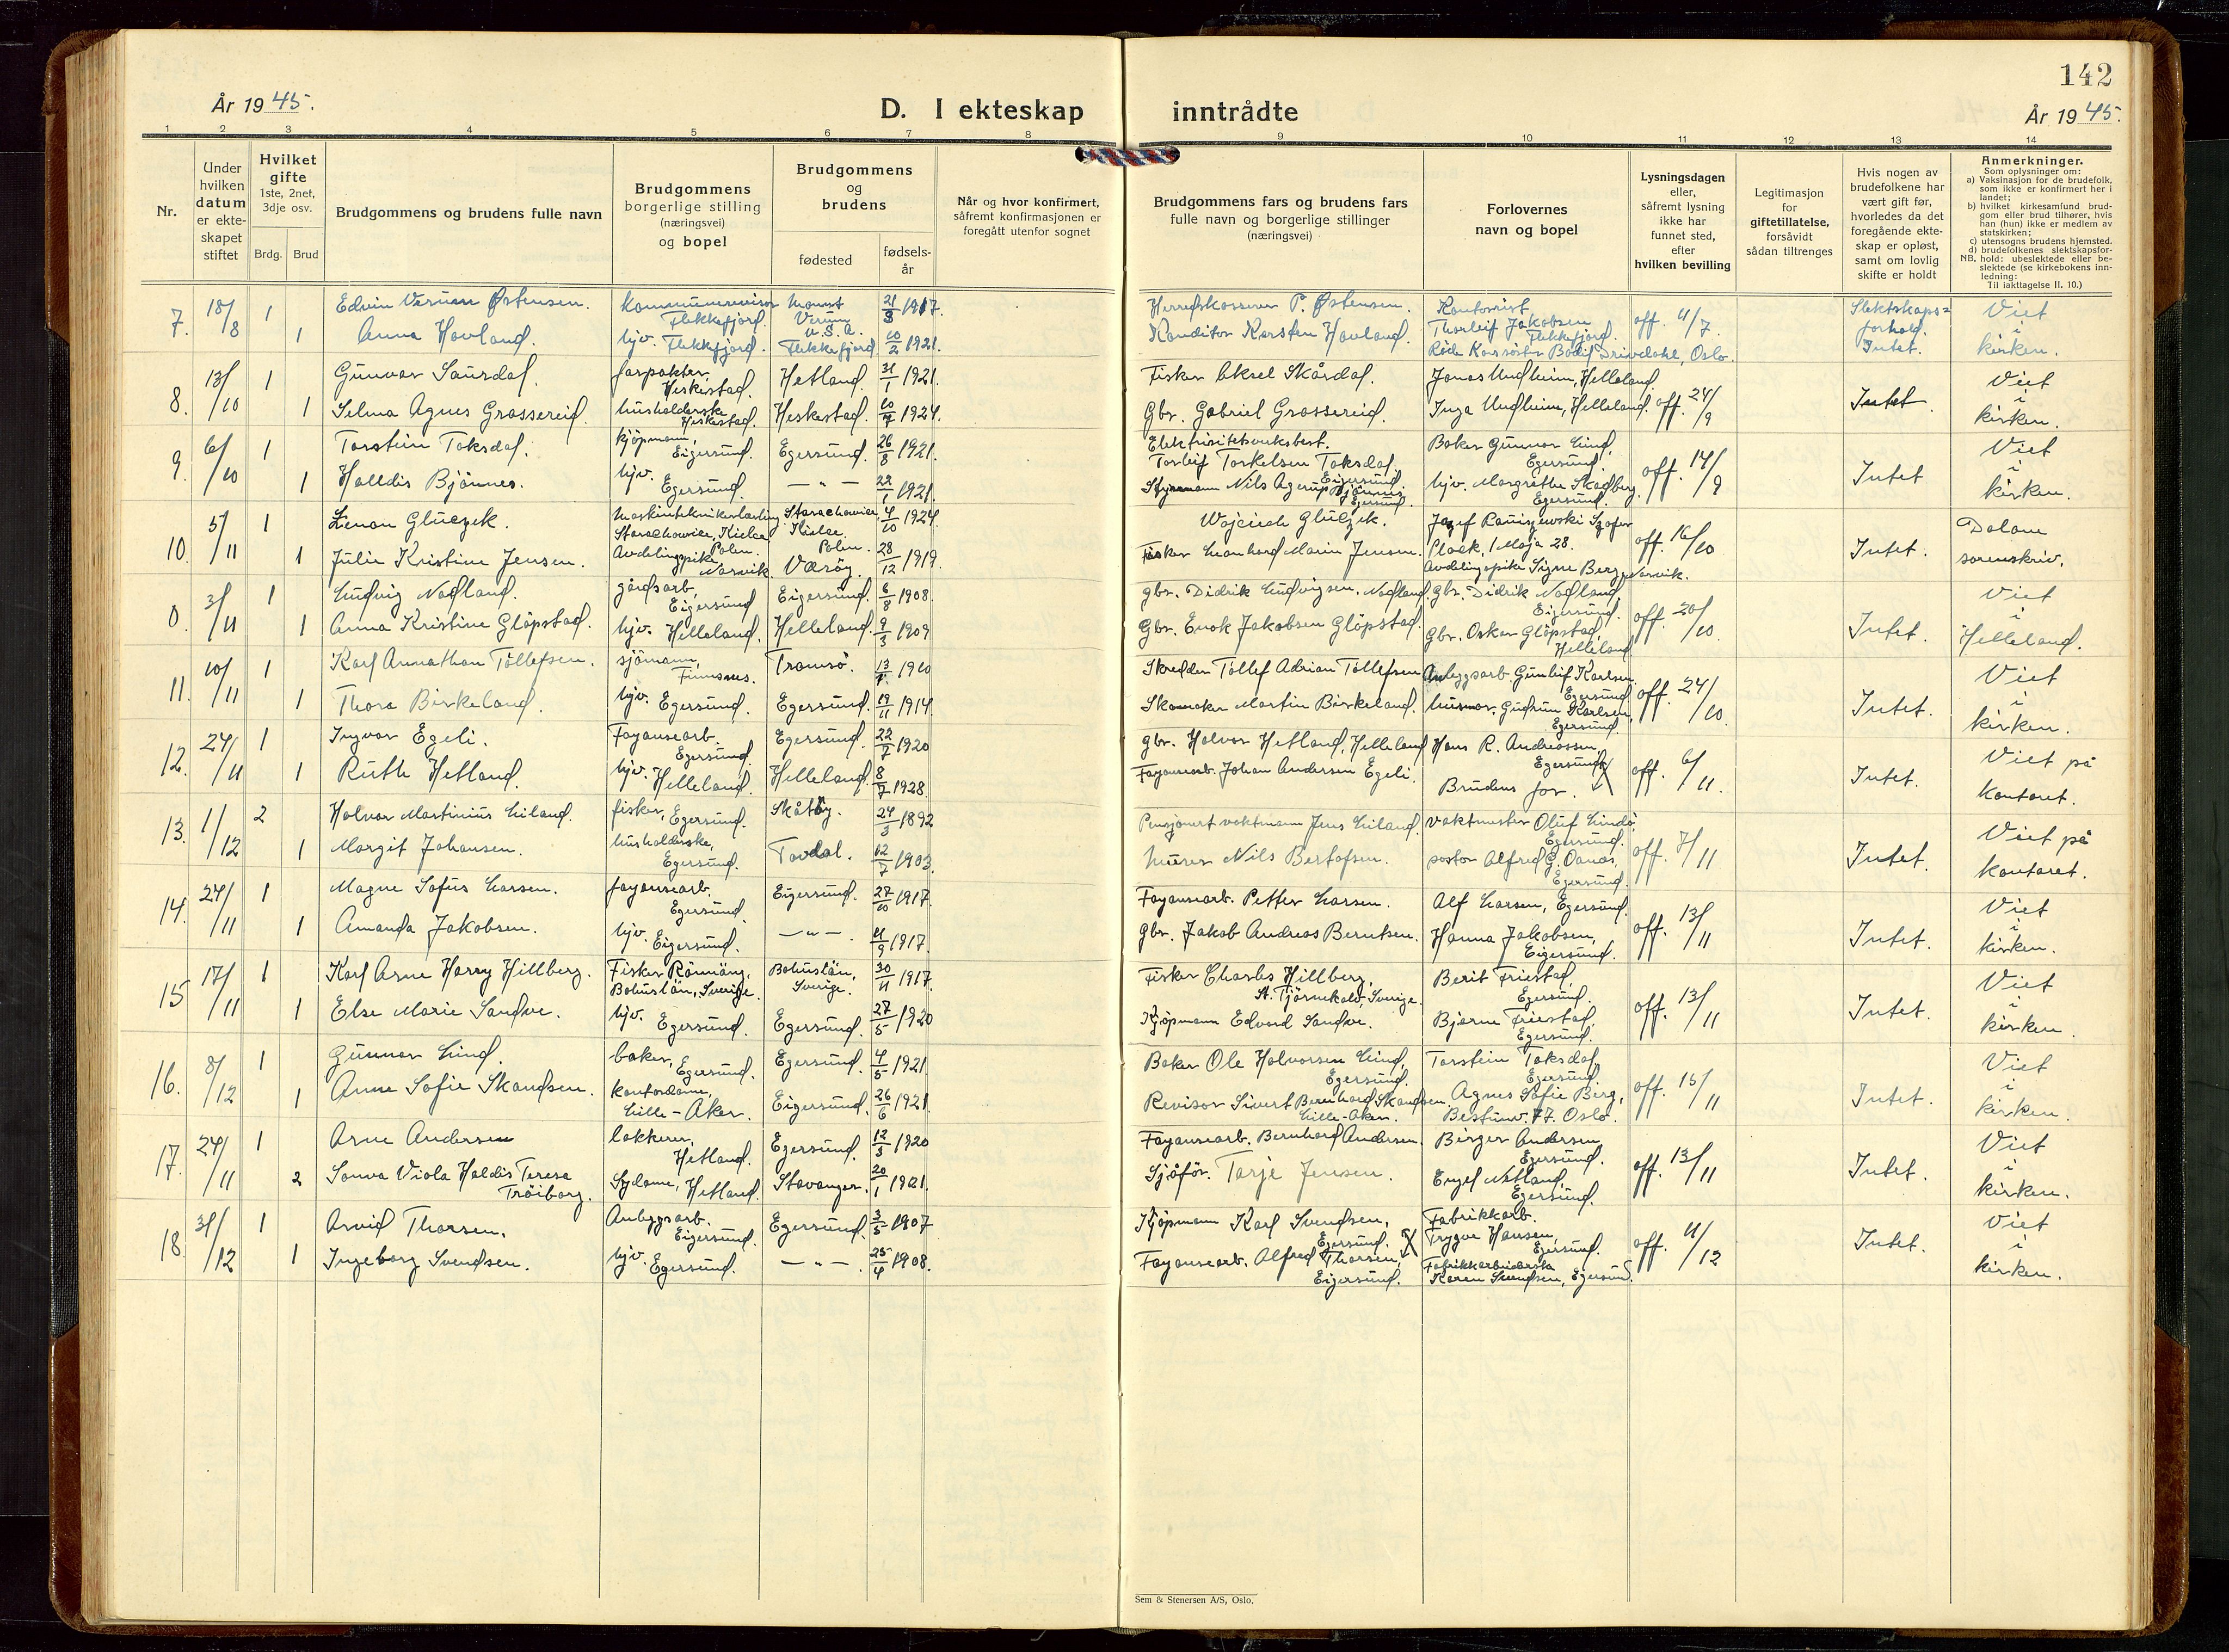 142
År 1945.
D. I ekteskap inntrådte
År 1945.
1 2 3 4 5 6 7 8 9 10 11 12 13 14
Nr.
Under hvilken datum er ekteskapet stiftet
Hvilket gifte 1ste, 2net, 3dje osv.
Brdg. Brud
Brudgommens og brudens fulle navn
Brudgommens borgerlige stilling (næringsvei) og bopel
Brudgommens og brudens
fødested
fødsels-år
Når og hvor konfirmert, såfremt konfirmasjonen er foregått utenfor sognet
Brudgommens fars og brudens fars fulle navn og borgerlige stillinger (næringsvei)
Forlovernes navn og bopel
Lysningsdagen eller, såfremt lysning ikke har funnet sted, efter hvilken bevilling
Legitimasjon for giftetillatelse, forsåvidt sådan tiltrenges
Hvis nogen av brudefolkene har vært gift før, hvorledes da det foregående ekteskap er opløst, samt om lovlig skifte er holdt
Anmerkninger.
Som oplysninger om:
a) Vaksinasjon for de brudefolk, som ikke er konfirmert her i landet;
b) hvilket kirkesamfund brudgom eller brud tilhører, hvis han (hun) ikke er medlem av statskirken;
c) utensogns brudens hjemsted.
d) brudefolkenes slektskapsforhold: ubeslektede eller beslektede (se kirkebokens innledning:
NB. Til iakttagelse II. 10.)
7. 18/8 1 Edvin Verum Østensen. kommunerevisor Flekkefjord. Verum U.S.A. 21/3 1917. Herredskasserer P. Østensen. Kontorist Thorleif Jakobsen Flekkefjord. off. 11/7. Slektskapsforhold. Intet. Viet i kirken.
1 Anna Hovland. hjv. Flekkefjord. Flekkefjord. 10/2 1921. Konditor Karsten Hovland. Oslo.
8. 13/10 1 Gunvar Saurdal. forpakter, Heskestad. Hetland. 31/1 1921. Fisker Aksel Skårdal. Jonas Undheim, Helleland. off. 24/9 Intet. Viet i kirken.
1 Selma Agnes Grassereid. husholderske Heskestad. Heskestad. 10/7 1924. Gbr. Gabriel Grossereid. Inga Undheim, Helleland.
9. 6/10 1 Torstein Toksdal. kjøpmann, Eigersund. Egersund. 26/8 1921. Elektrisitetsverksbest. Torleif Torkelsen Toksdal. Eigersund. Baker Gunnar Lind, Egersund. off. 14/9 Intet Viet i kirken.
1 Halldis Bjönnes. hjv. Egersund. — " — 22/1 1921. Styrmann Nils Agerup Bjönnes Egersund. hjv. Margrethe Skadberg. Egersund.
10. 5/11 1 Zenon Gluczek. Maskinteknikerlærling Starachowice, Kielce Polen. Starachowice, Kielce. Polen. 4/10 1924 Wojciech Gluczek. Jozef Szofer Plock, 1 Maja 28. off. 16/10 Intet. Dalane sorenskriv.
1 Julie Kristine Jensen. Avdelingspike Narvik. Værøy. 28/12 1919. Fisker Leonhard Marin Jensen. Avdelingspike Signe Berg, Narvik.
0. 3/11 1 Ludvig Nodland. gårdsarb. Eigersund Eigersund. 6/8 1908. gbr. Didrik Ludvigsen Nodland. Gbr. Didrik Nodland, Eigersund. off. 20/10. Intet. Viet i Helleland.
1 Anna Kristine Glöpstad. hjv. Helleland. Helleland. 9/3 1909 Gbr. Enok Jakobsen Glöpstad. Gbr. Oskar Glöpstad, Helleland
11. 10/11 1 Karl Annathon Tollefsen. sjömann, Finnsnes. Tromsö. 1920 Skredder Tollef Adrian Tollefsen Anleggsarb. Gunleif Karlsen. Egersund. off. 24/10. Intet. Viet i kirken.
1 Thora Birkeland. hjv. Egersund. Egersund. 19/11 1914. Skomaker Martin Birkeland. husmor. Gudrun Karlsen, Egersund.
12. 24/11 1 Ingvar Egeli. Fayansearb. Egersund. Egersund. 22/7 1920 gbr. Halvor Hetland, Helleland Hans R. Andreassen, Egersund. off. 6/11. Intet. Viet på kontoret.
1 Ruth Hetland. hjv. Helleland. Helleland. 8/7 1928. Fayansearb. Johan Andersen Egeli. Brudens far.
13. 1/12 2 Halvor Martinius Liland. fisker, Egersund. Skåtöy. 24/3 1892 Pensjonert vaktmann Jens Liland. vaktmester Oluf Lindö, Egersund. off. 7/11 Intet. Viet på kontoret.
1 Margit Johansen. husholderske, Egersund. Tovdal. 12/7 1903. Murer Nils Bertofsen. pastor Alfred G. Oanes, Egersund.
14. 24/11 1 Magne Sofus Larsen. fayansearb. Egersund. Eigersund. 27/10 1917. Fayansearb. Petter Larsen. Alf Larsen, Egersund. off. 13/11 Intet. Viet i kirken.
1 Amanda Jakobsen. hjv. Eigersund. — " — 11/9 1917. Gbr. Jakob Andreas Berntsen. Hanna Jakobsen, Eigersund.
15 17/11 1 Karl Arne Harry Hillberg. Fisker Rönnäng, Bohuslän, Sverige. Bohuslän, Sverige. 30/11 1917. Fisker Charles Hillberg, St. Tjörnekalv, Sverige. Berit Friestad, Egersund. off. 13/11 Intet. Viet i kirken.
1 Else Marie Sandve. hjv. Egersund. Egersund. 27/5 1920 Kjöpmann Edvard Sandve. Bjarne Friestad. Egersund.
16. 8/12 1 Gunnar Lind. baker, Egersund. Egersund. 4/5 1921. Baker Ole Halvorsen Lind, Egersund. Torstein Toksdal, Egersund. off. 15/11 Intet. Viet i kirken.
1 Anne Sofie Skandsen. kontordame, Lille-Aker. Eigersund. 26/6 1921. Revisor Sivert Bernhard Skandsen Lille-Aker. Agnes Sofie Berg, Bestumv. 77. Oslo.
17. 24/11 1 Arne Andersen lakkerer, Hetland. Egersund. 12/3 1920 Fayansearb. Bernhard Andersen. Birger Andersen Egersund. off. 13/11 Intet. Viet i kirken.
2 Sonva Viola Haldis Teresa Tröiborg. Sydame, Hetland. Stavanger. 20/1 1921. Sjåför. Tarje Jensen. Engel Netland, Egersund.
18. 31/12 1 Arvid Thorsen. Anleggsarb. Eigersund. Egersund. 3/5 1907 Kjöpmann Karl Svendsen, Egersund. Fabrikkarb. Trygve Hansen, Egersund. off. 11/12 Intet. Viet i kirken.
1 Ingeborg Svendsen. hjv. Egersund. — " — 25/4 1908. Fayansearb. Alfred Thorsen, Eigersund. Fabrikkarbeiderske Karen Svendsen, Egersund.
Sem & Stenersen A/S, Oslo.